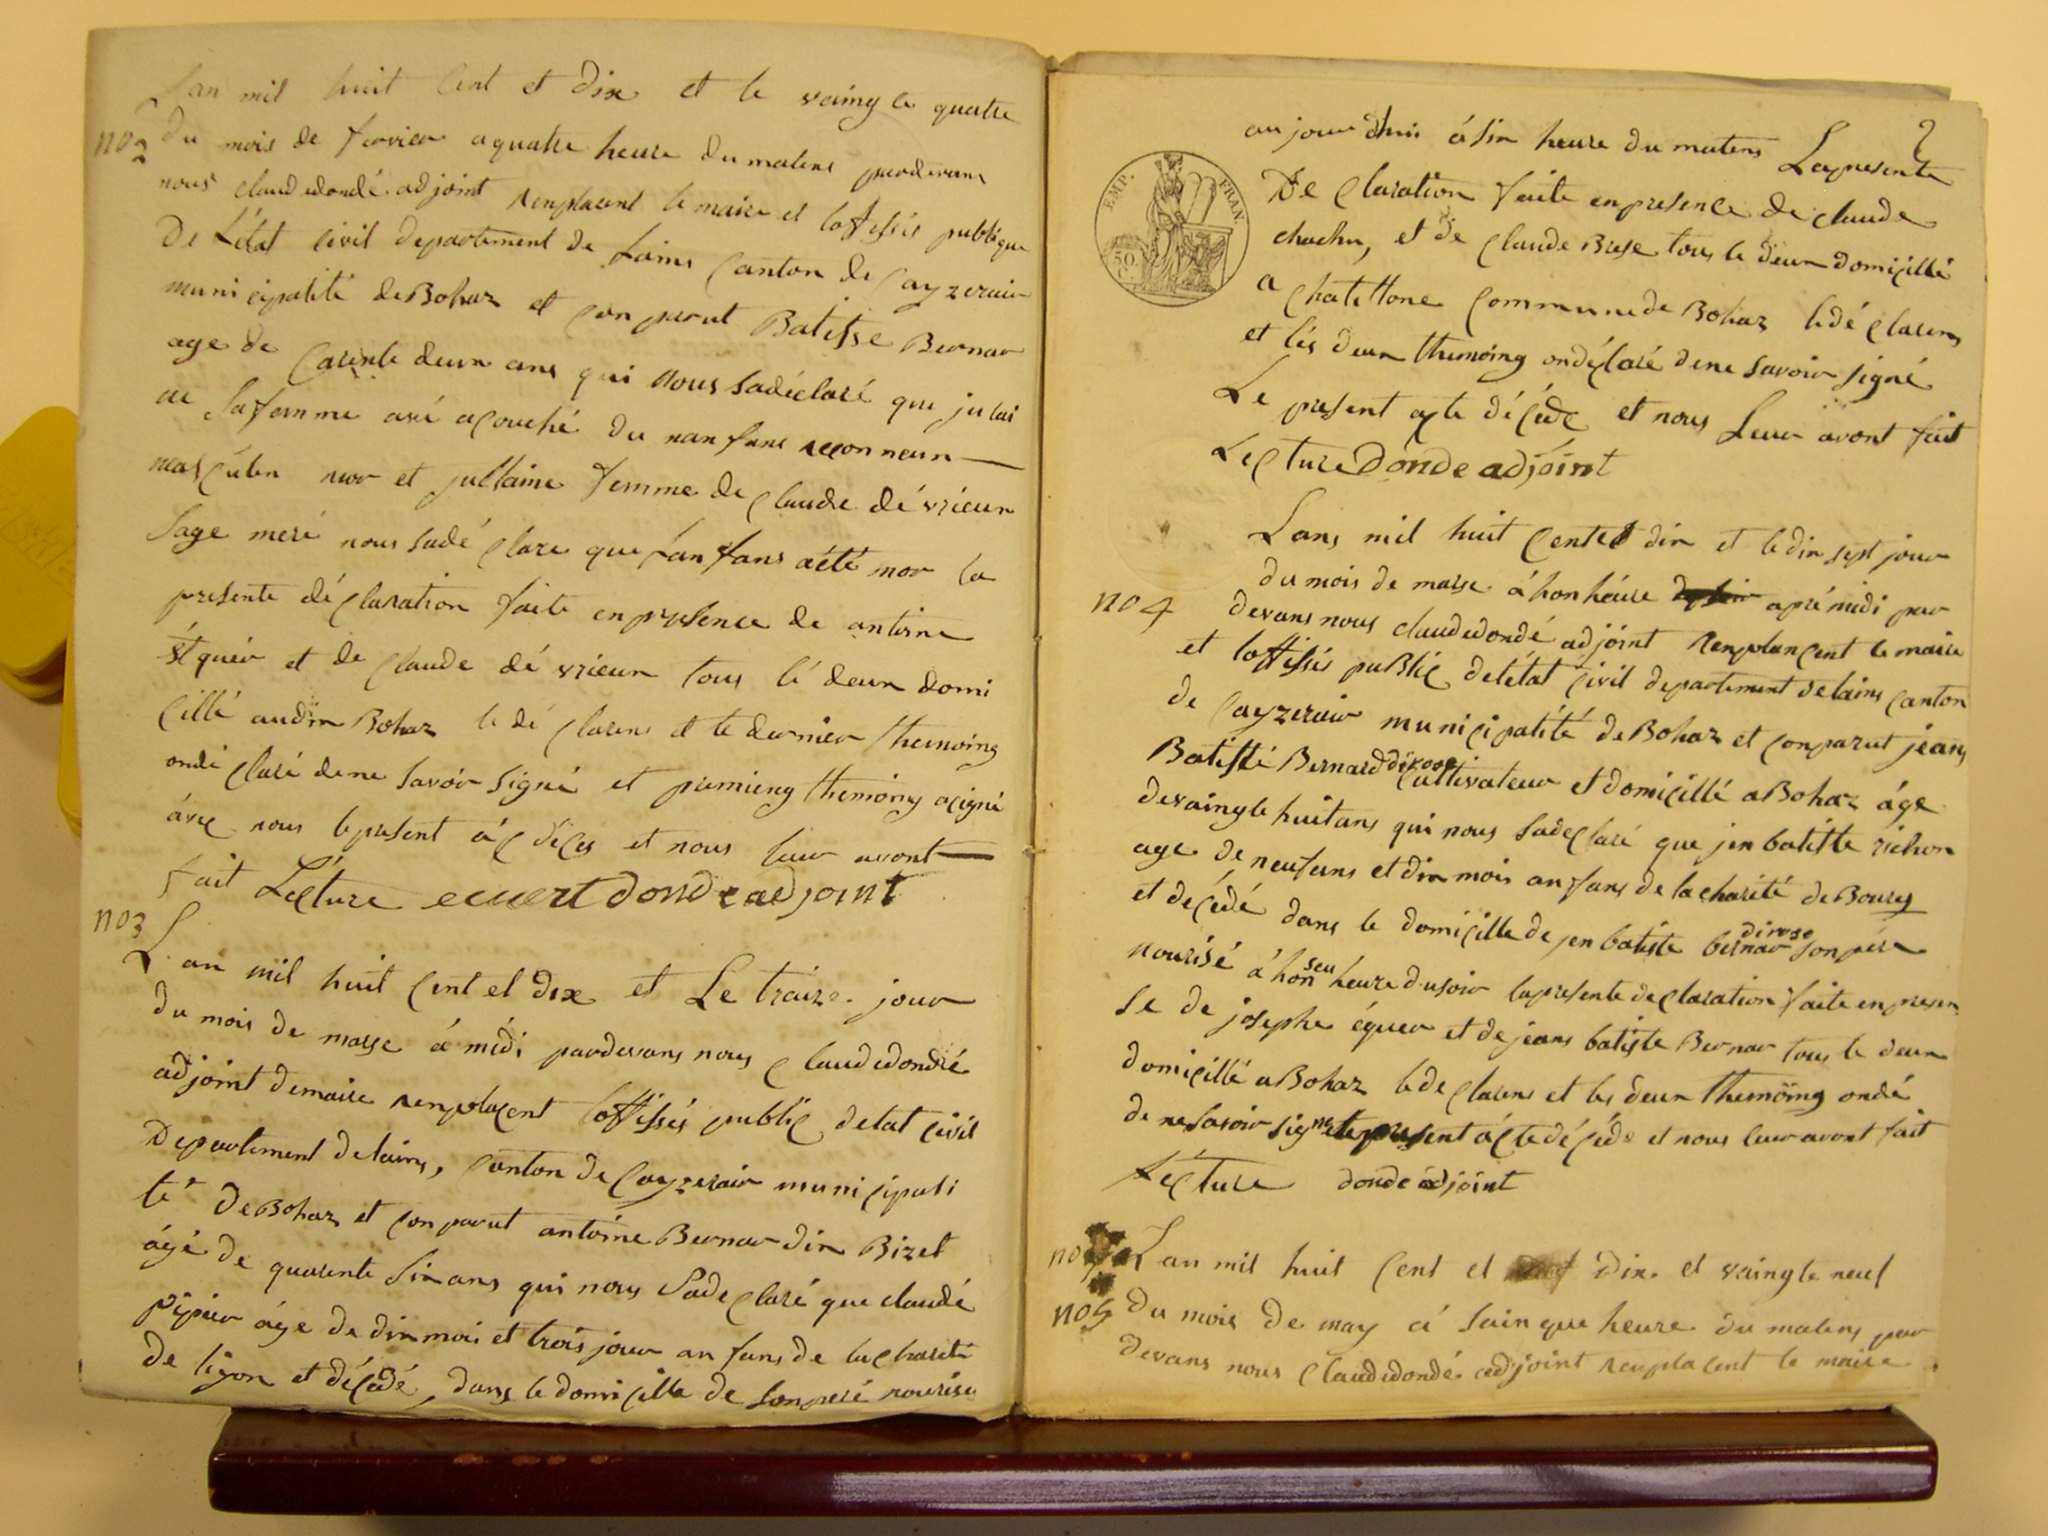 Lan mil huit Cent et dix et le vaingte quatre
no 2 du mois de fevrier a quatre heure du matens pardevans
nous claud dondé adjoint renplacent le maire et loffisié publique
de Létat civil departement de Lains Canton de Cayzeraiu
municipalité de Bohaz et Conparut Batisse Bernar
age de Carente deux ans qui nous Sadéclaré que
sa femme acouché du nanfans
masculen mor et jullaine femme de Claude dévrieux
Sage meré nous Sadéclare que lanfans aété mor la
presente déClaration faite enpresence de antoine
équier et de Claude dé vrieux tous lé deux domi
Cillé audix Bohaz le déClarens et le dernier themoing
ondéClaré dene savoir signé et premieng themoing asigné
áveC nous lepresent áC déCes et nous leur avont
fait LéCture ecuert donde adjoint
no 3
Lan mil huit Cent et dix et Le traize jour
du mois de marse á midi pardevans nous Claud dondé
adjoint demaire renplaCent loffissiés publiC detat Civil
Departement delains, Canton de Cayzeraiu municipali
té deBohaz et Conparut antoine Bernar dix Bizet
ágé de quarente Six ans qui nous SadeClaré que claudé
pipier áge de dix mois et trois jour anfans de laCharité
de liyon et déCédé, dans le domiCille de Sonperé nourisie
2
aujour dhui ásix heure du matens Lapresente
De Claration faite enpresence de claude
chachu, et de Claude Buse tous le deux domiCillé
a Chatillone Commune de Bohaz le déClarens
et lés deux themoing ondéClaré dene savoir signé
Le present aCte déCédé et nous Leur avont fait
LeCture Donde adjoint
EMP. FRAN
50. C.
Lans mil huit Cent et dix et le dix sept jour
du mois de marse á hon heure aprémidi par
no 4 devans nous claud dondé adjoint RenplanCent le maire
et loffissiés puBliC delétat Civil departement delains Canton
de Cayzeraiu municipalité deBohaz et Conparut jeans
Batisté Bernard dirose Cultivateur et domiCillé aBohaz áge
devaingte huitans qui nous SadeClaré que jen batiste richon
age de neufans et dix mois anfans de la charité de Bourg
et déCédé dans le domiCille de jen batiste bernar dirose sonpére
nourisé á honseu heure dusoir lapresente deClaration faite enpresen
se de josephe équer et de jeans batiste Bernar tous le deux
domiCillé aBohaz le deClarens et les deux themoing ondé
de nesavoir signé lepresent áCte déCédé et nous leur avont fait
LéCture donde adjoint
no
Lan mil huit Cent et dix et vaingte neuf
no 5 du mois de may á Sainque heure du matens par
devans nous Claud dondé adjoint renplacent le maire